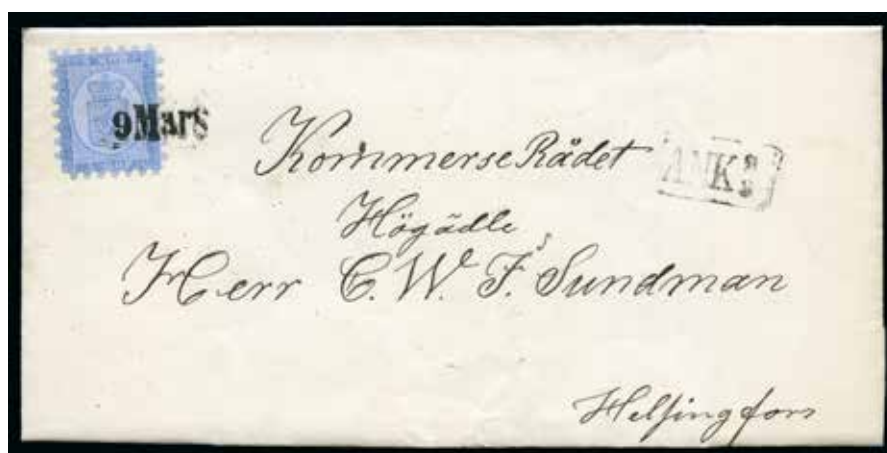 9 Mars
KommerseRådet
ANK.
Högädle
Herr C. W. F. Sundman
Helsingfors